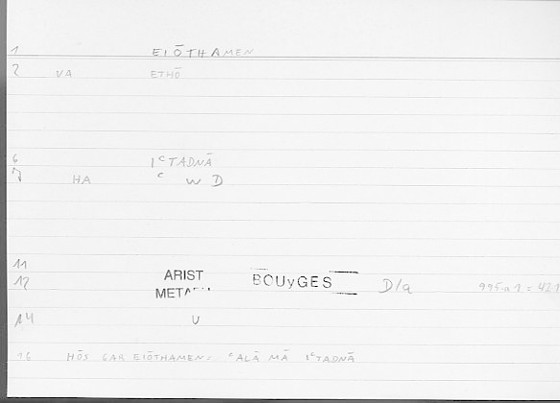 1 EIŌTHAMEN
2 VA ETHŌ
6 IᶜTADNĀ
7 HA ᶜ W D
11
12 ARIST BOUyGES D/a 995a1 = 421
METAPH
14 V
16 HŌS GAR EIŌTHAMEN: ᶜALĀ MĀ IᶜTADNĀ